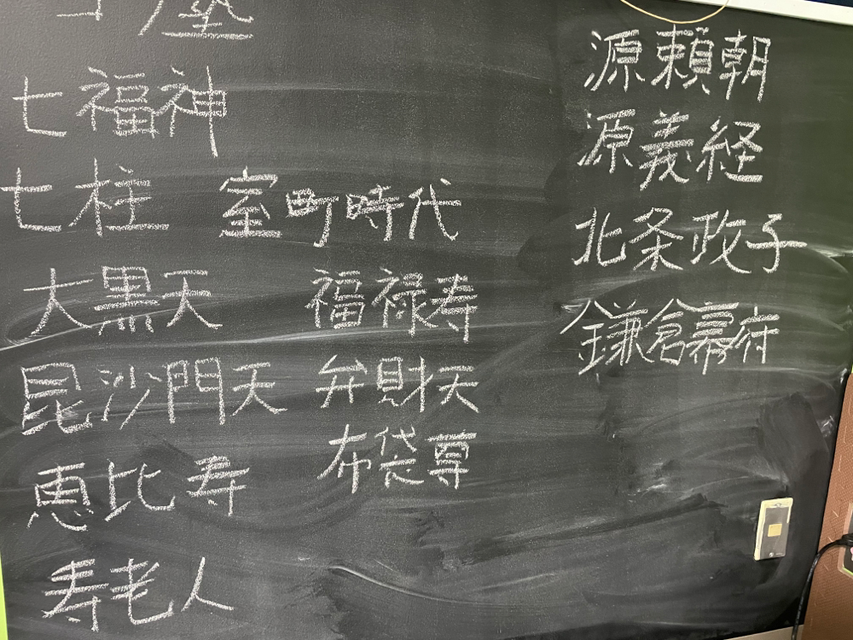 七福神
七柱
大黒天
毘沙門天
恵比寿
寿老人
室町時代
福禄寿
弁財天
布袋尊
源頼朝
源義経
北条政子
鎌倉幕府